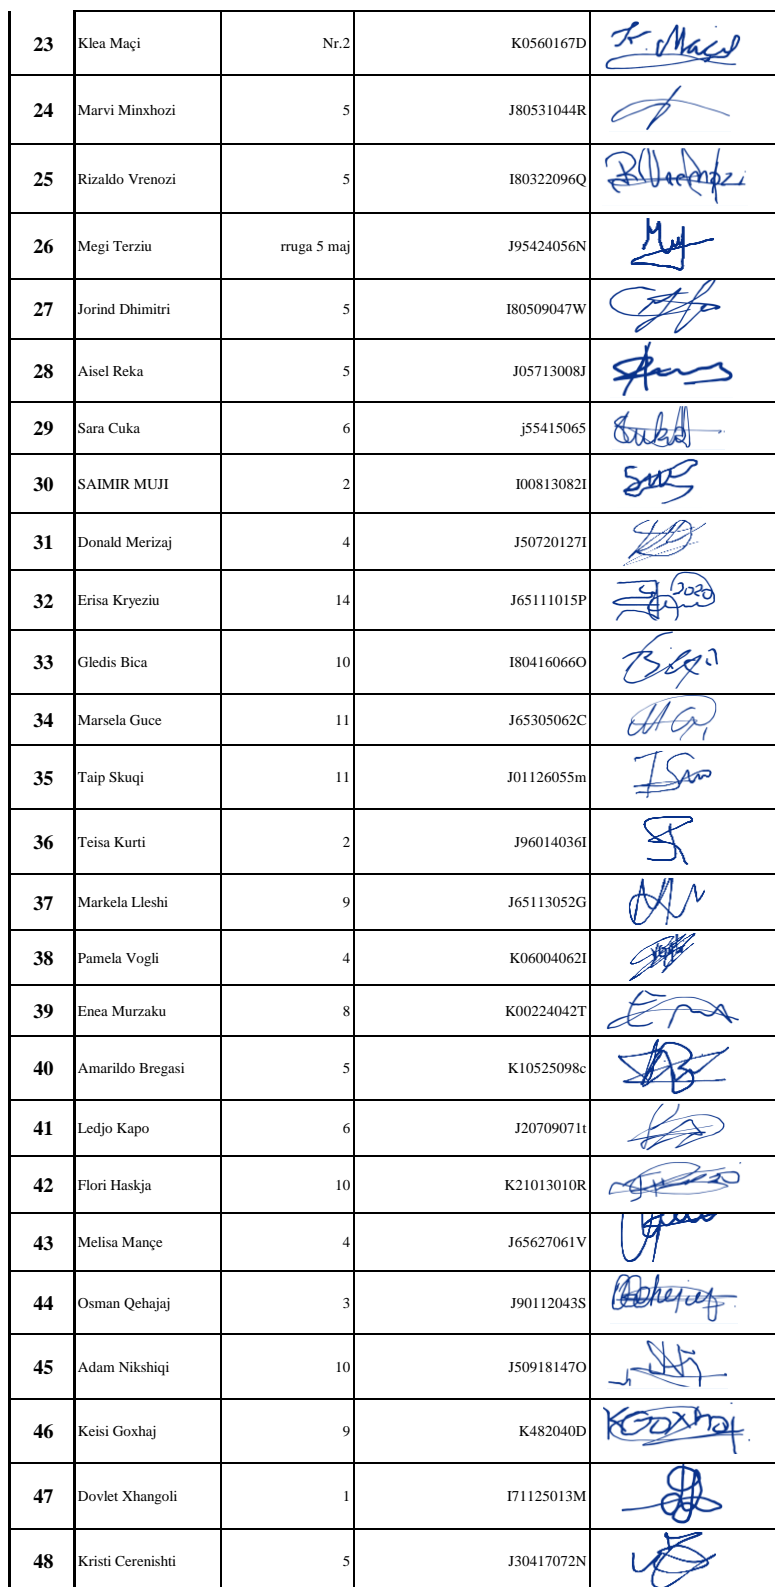 23 Klea Maçi Nr.2 K0560167D K. Maçi
24 Marvi Minxhozi 5 J80531044R
25 Rizaldo Vrenozi 5 I80322096Q
26 Megi Terziu rruga 5 maj J95424056N
27 Jorind Dhimitri 5 I80509047W
28 Aisel Reka 5 J05713008J
29 Sara Cuka 6 j55415065
30 SAIMIR MUJI 2 I00813082I
31 Donald Merizaj 4 J50720127I
32 Erisa Kryeziu 14 J65111015P
33 Gledis Bica 10 I80416066O
34 Marsela Guce 11 J65305062C
35 Taip Skuqi 11 J01126055m
36 Teisa Kurti 2 J96014036I
37 Markela Lleshi 9 J65113052G
38 Pamela Vogli 4 K06004062I
39 Enea Murzaku 8 K00224042T
40 Amarildo Bregasi 5 K10525098c
41 Ledjo Kapo 6 J20709071t
42 Flori Haskja 10 K21013010R
43 Melisa Mançe 4 J65627061V
44 Osman Qehajaj 3 J90112043S
45 Adam Nikshiqi 10 J50918147O
46 Keisi Goxhaj 9 K482040D KGoxhaj
47 Dovlet Xhangoli 1 I71125013M
48 Kristi Cerenishti 5 J30417072N